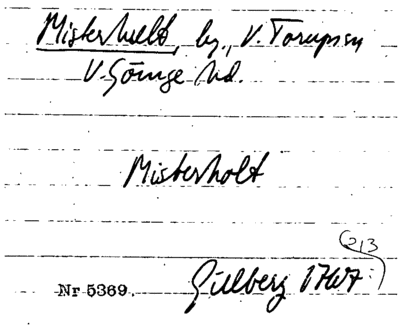 Misterhult, by, V. Torups sn
V. Göinge hd.
Misterholt
213
Nr 5369. Gillberg 1767: